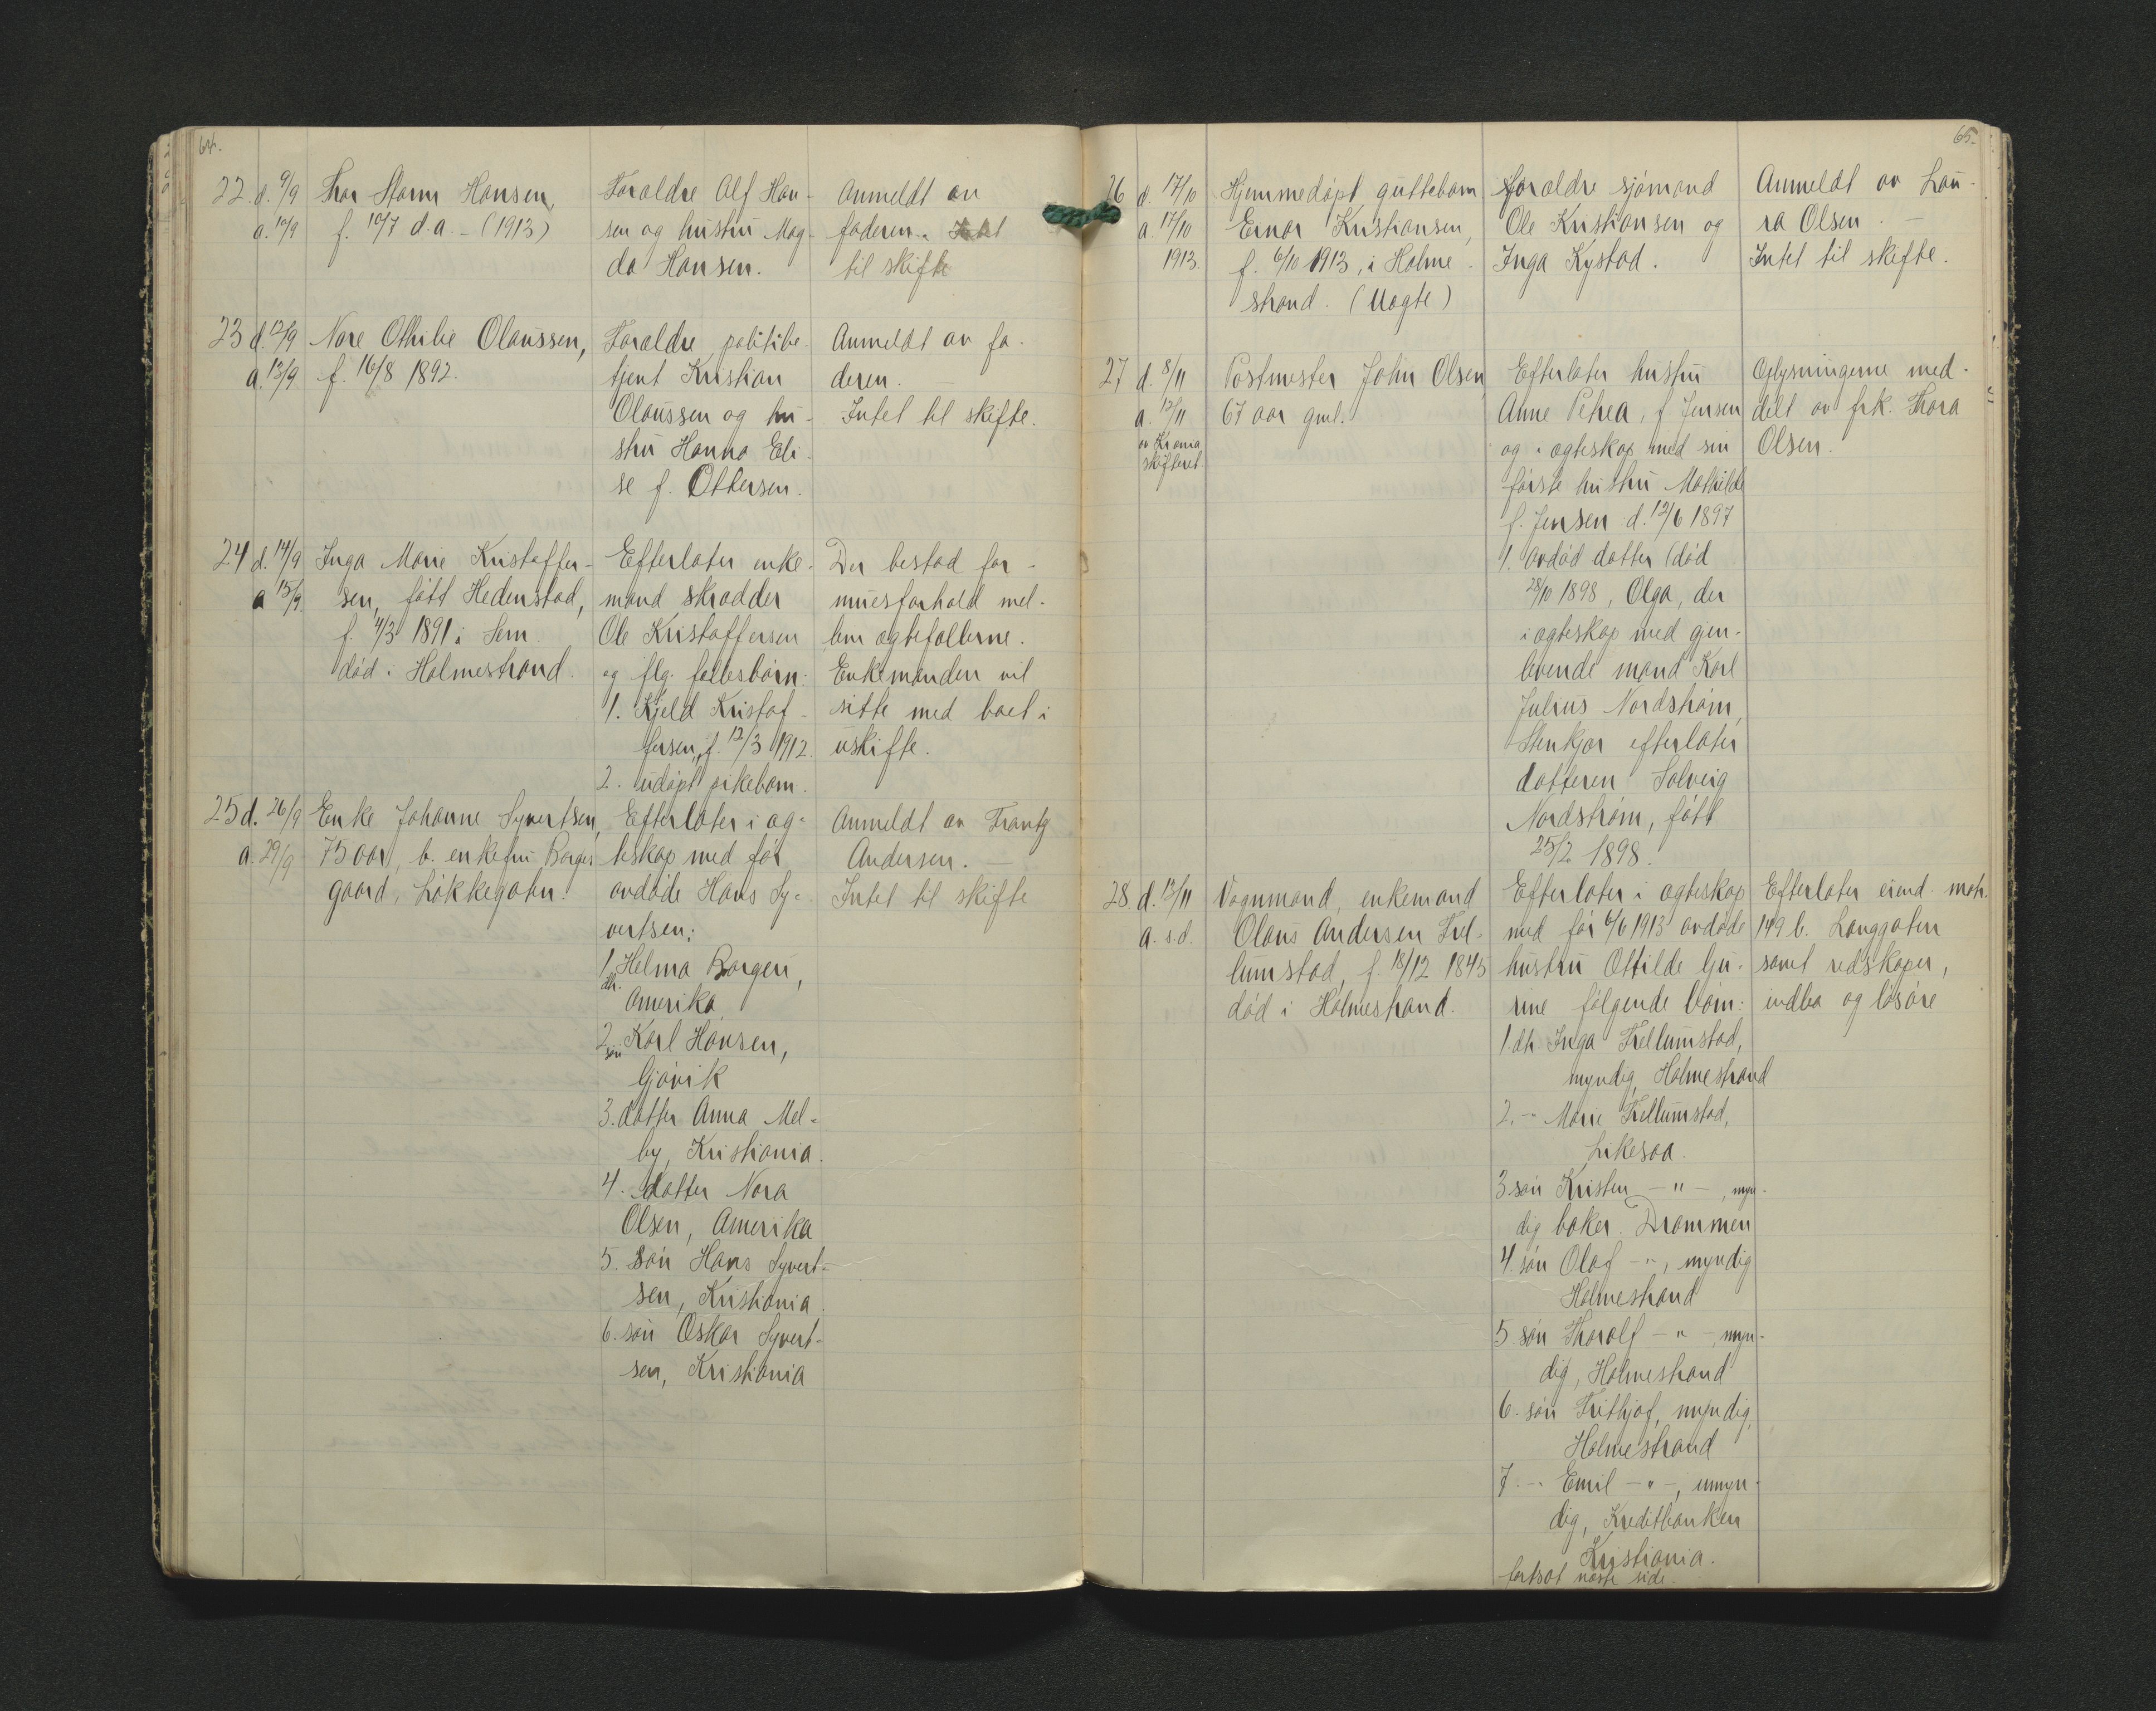 64.
22. d. 9/9 Thor Storm Hansen, Forældre Alf Han- Anmeldt av
a. 10/9 f. 10/7 d.a. - (1913) sen og hustru Mag- faderen. Intet
da Hansen. til skifte
23 d. 12/9 Nore Othilie Olaussen, Forældre politibe- Anmeldt av fa-
a. 13/9 f. 16/8 1892. tjent Kristian deren. —
Olaussen og hu- Intet til skifte.
stru Hanna Eli-
se f. Ottersen.
24 d. 14/9 Inga Marie Kristoffer- Efterlater enke- Der bestod for-
a 15/9 sen, født Hedenstad, mand skrædder muesforhold mel-
f. 4/3 1891 i Sem. Ole Kristoffersen lem ægtefællerne.
død i Holmestrand. og flg. fællesbørn: Enkemanden vil
1. Kjeld Kristof- sitte med boet i
fersen, f. 12/3 1912. uskifte.
2. udøpt pikebarn.
25 d. 26/9 Enke Johanne Syvertsen, Efterlater i æg- Anmeldt av Frantz
a. 29/9 75 aar, b. enkefru Borger- teskap med før Andersen. —
gaard, Løkkegaten. avdøde Hans Sy- Intet til skifte
vertsen:
1. Helma Borgen,
dtr.
Amerika
2. Karl Hansen,
søn
Gjøvik
3. datter Anna Mel-
by, Kristiania.
4. datter Nora
Olsen, Amerika
5. søn Hans Syvert-
sen, Kristiania.
6. søn Oskar Syvert-
sen, Kristiania
65.
26 d. 17/10 Hjemmedøpt guttebarn Forældre sjømand Anmeldt av Lau-
a. 17/10 Einar Kristiansen, Ole Kristiansen og ra Olsen. —
1913. f. 6/10 1913, i Holme- Inga Kystad. Intet til skifte.
strand. (Uægte)
27 d. 8/11 Postmester John Olsen, Efterlater hustru Oplysningerne med-
a. 12/11 67 aar gml. Anne Petrea, f. Jensen delt av frk. Thora
av Krania og i ægteskap med sin Olsen.
skifteret første hustru Mathilde
f. Jensen d. 12/6 1897
1. avdød datter (død
28/10 1898, Olga, der
i ægteskap med gjen-
levende mand Karl
Julius Nordstrøm,
Stenkjær efterlater
datteren Solveig
Nordstrøm, født
25/2 1898.
28. d. 13/11 Vognmand, enkemand Efterlater i ægteskap Efterlater eiend. matr.
a. s.d. Olaus Andersen Frel- med før 6/6 1913 avdøde 149 b. Langgaten
lumstad, f. 18/12 1845 hustru Ottilde Gu- samt redskaper,
død i Holmestrand. rine følgende børn: indbo og løsøre
1. dtr Inga Frellumstad,
myndig, Holmestrand
2. -"- Marie Frellumstad,
Likesaa.
3 søn Kristen -"-, myn-
dig baker. Drammen
4. søn Olaf -"-, myndig
Holmestrand
5. søn Thorolf -"-, myn-
dig, Holmestrand
6. søn Frithjof, myndig,
Holmestrand
7. -"- Emil -"-, umyn-
dig, Kreditbanken
Kristiania.
fortsat næste side.